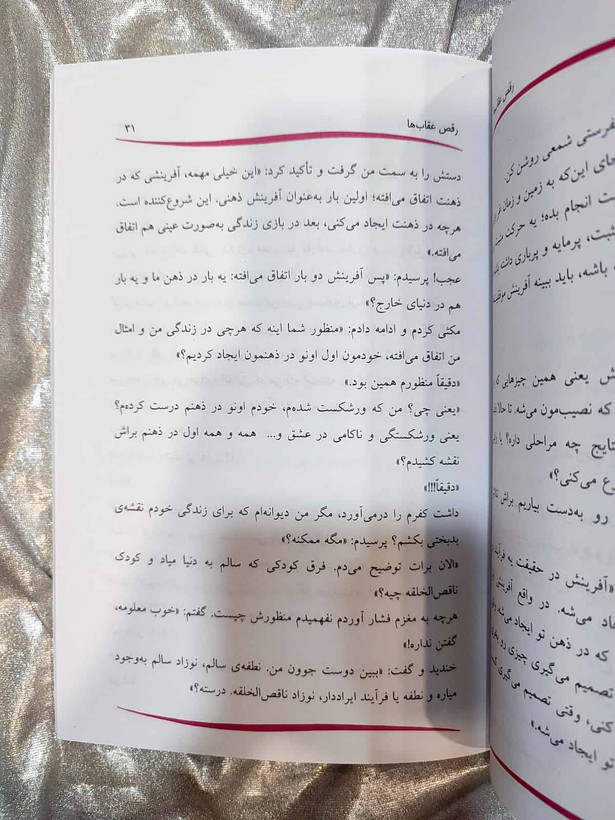 رقص عقاب‌ها
۳۱
دستش را به سمت من گرفت و تأکید کرد: «این خیلی مهمه، آفرینشی که در
ذهنت اتفاق می‌افته؛ اولین بار به‌عنوان آفرینش ذهنی. این شروع‌کننده است.
هرچه در ذهنت ایجاد می‌کنی، بعد در بازی زندگی به‌صورت عینی هم اتفاق
می‌افته.»
عجب! پرسیدم: «پس آفرینش دو بار اتفاق می‌افته: یه بار در ذهن ما و یه بار
هم در دنیای خارج؟»
مکثی کردم و ادامه دادم: «منظور شما اینه که هرچی در زندگی من و امثال
من اتفاق می‌افته، خودمون اول اونو در ذهنمون ایجاد کردیم؟»
«دقیقاً منظورم همین بود.»
«یعنی چی؟ من که ورشکست شده‌م، خودم اونو در ذهنم درست کرده‌م؟
یعنی ورشکستگی و ناکامی در عشق و... همه و همه اول در ذهنم براش
نقشه کشیدم؟»
«دقیقاً!!!»
داشت کفرم را درمی‌آورد، مگر من دیوانه‌ام که برای زندگی خودم نقشه‌ی
بدبختی بکشم؟ پرسیدم: «مگه ممکنه؟»
«الان برات توضیح می‌دم. فرق کودکی که سالم به دنیا میاد و کودک
ناقص‌الخلقه چیه؟»
هرچه به مغزم فشار آوردم نفهمیدم منظورش چیست. گفتم: «خوب معلومه،
گفتن نداره!»
خندید و گفت: «ببین دوست جوون من. نطفه‌ی سالم، نوزاد سالم به‌وجود
میاره و نطفه یا فرآیند ایراددار، نوزاد ناقص‌الخلقه. درسته؟»
رقص عقاب‌ها
شمعی روشن کن.
جای این‌که به زمین و زمان
انجام بده؛ یه حرکت
پرمایه و پرباری داشته
باشه، باید ببینه آفرینش
یعنی همین چیزهایی
که نصیب‌مون می‌شه. تا حالا
نتایج چه مراحلی داره؟ یا
می‌کنی؟»
رو به‌دست بیاریم براش
«آفرینش در حقیقت یه
می‌شه. در واقع آفرینش
که در ذهن تو ایجاد می‌شه
تصمیم می‌گیری چیزی رو
کنی، وقتی تصمیم می‌گیری
تو ایجاد می‌شه.»